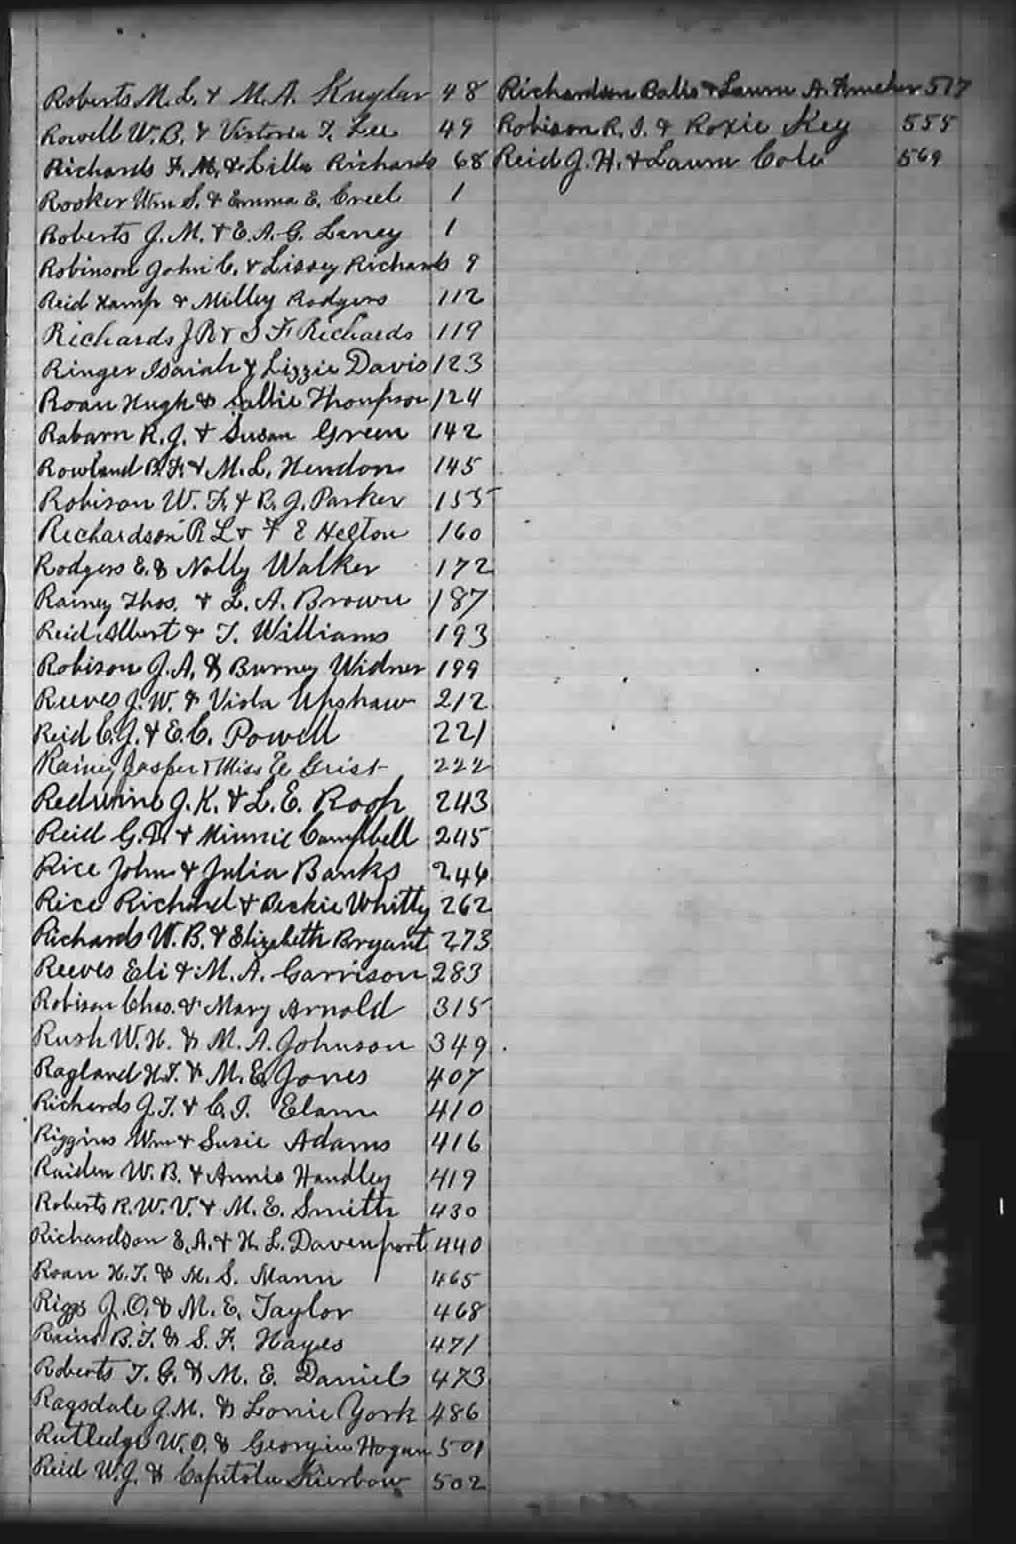 Roberts M. L. & M. A. Kuglar 48
Rowell W. B. & Victoria T. Lee 49
Richards F. M. & Lilla Richards 68
Rooker Wm S. & Emma E. Creel 1
Roberts J. M. & E. A. G. Laney 1
Robinson John C. & Lissey Richards 9
Reid Kamp & Milley Rodgers 112
Richards J R & S F Richards 119
Ringer Isaiah & Lizzie Davis 123
Roan Hugh & Sallie Thompson 124
Rabarn R. J. & Susan Green 142
Rowland B. F. & M. L. Hendon 145
Robison W. F. & B. J. Parker 155
Richardson R L & F E Helton 160
Rodgers E. & Nolly Walker 172
Rainey Thos. & L. A. Brown 187
Reid Albert & T. Williams 193
Robison J. A. & Burney Widner 199
Reeves J. W. & Viola Upshaw 212
Reid C. J. & E. C. Powell 221
Rainey Jasper & Miss E Grist 222
Redwine J. K. & L. E. Roop 243
Reid G. D. & Minnie Campbell 245
Rice John & Julia Banks 246
Rice Richard & Beckie Whitty 262
Richards W. B. & Elizabeth Bryant 273
Reeves Eli & M. A. Garrison 283
Robison Chas. & Mary Arnold 315
Rush W. H. & M. A. Johnson 349
Ragland H. T. & M. E. Jones 407
Richards J. T. & C. I. Elam 410
Riggins Wm & Susie Adams 416
Raiden W. B. & Annie Handley 419
Roberts R. W. V. & M. E. Smith 430
Richardson E. A. & H. L. Davenport 440
Roan H. T. & M. S. Mann 465
Riggs J. O. & M. E. Taylor 468
Rains B. T. & S. F. Hayes 471
Roberts T. G. & M. E. Daniel 473
Ragsdale J. M. & Lonie York 486
Rutledge W. O. & Georgia Hogan 501
Reid W. J. & Capitola Kierbow 502
Richardson Balis & Laura A. 517
Robison R. I. & Roxie Key 555
Reid J. H. & Laura Cole 569